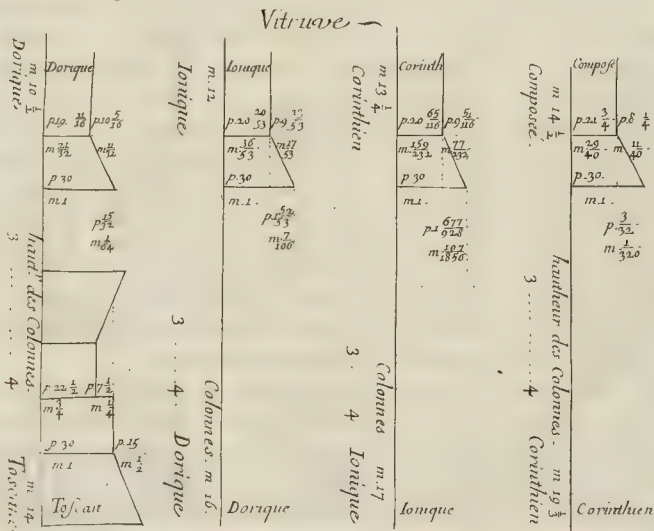 Vitruve
m 10 1/2
Dorique
Dorique
p 19. 11/16 p 10 5/16
m 21/32 m 11/32
p 30
m. 1
p 15/32
m 1/64
haut.r des Colonnes.
3 . . . . . 4
p. 22 1/2 p 7 1/2
m 3/4 m 1/4
p 30 p. 15
m 1 m 1/2
Toscan
m 14
Toscane
m. 12
Ionique
Ionique
p. 20 20/53 p. 9 33/53
m 36/53 m 17/53
p. 30
m. 1.
p 1 52/53
m. 7/106
3 . . . . 4. Dorique
Colonnes. m 16.
Dorique
m 13 1/4
Corinthien
Corinth
p. 20 65/116 p. 9 51/116
m 159/232 m 77/232
p 30
m. 1.
p 1 677/928
m 107/1856
3 . 4 Ionique
Colonnes m. 17
Ionique
m 14 1/2
Composée.
Composé
p. 21 3/4 p. 8 1/4
m 29/40 m 11/40
p. 30.
m. 1.
p. 3/32.
m 1/320
hautheur des Colonnes. m 19 1/3
3 . . . . . 4 Corinthien
Corinthien